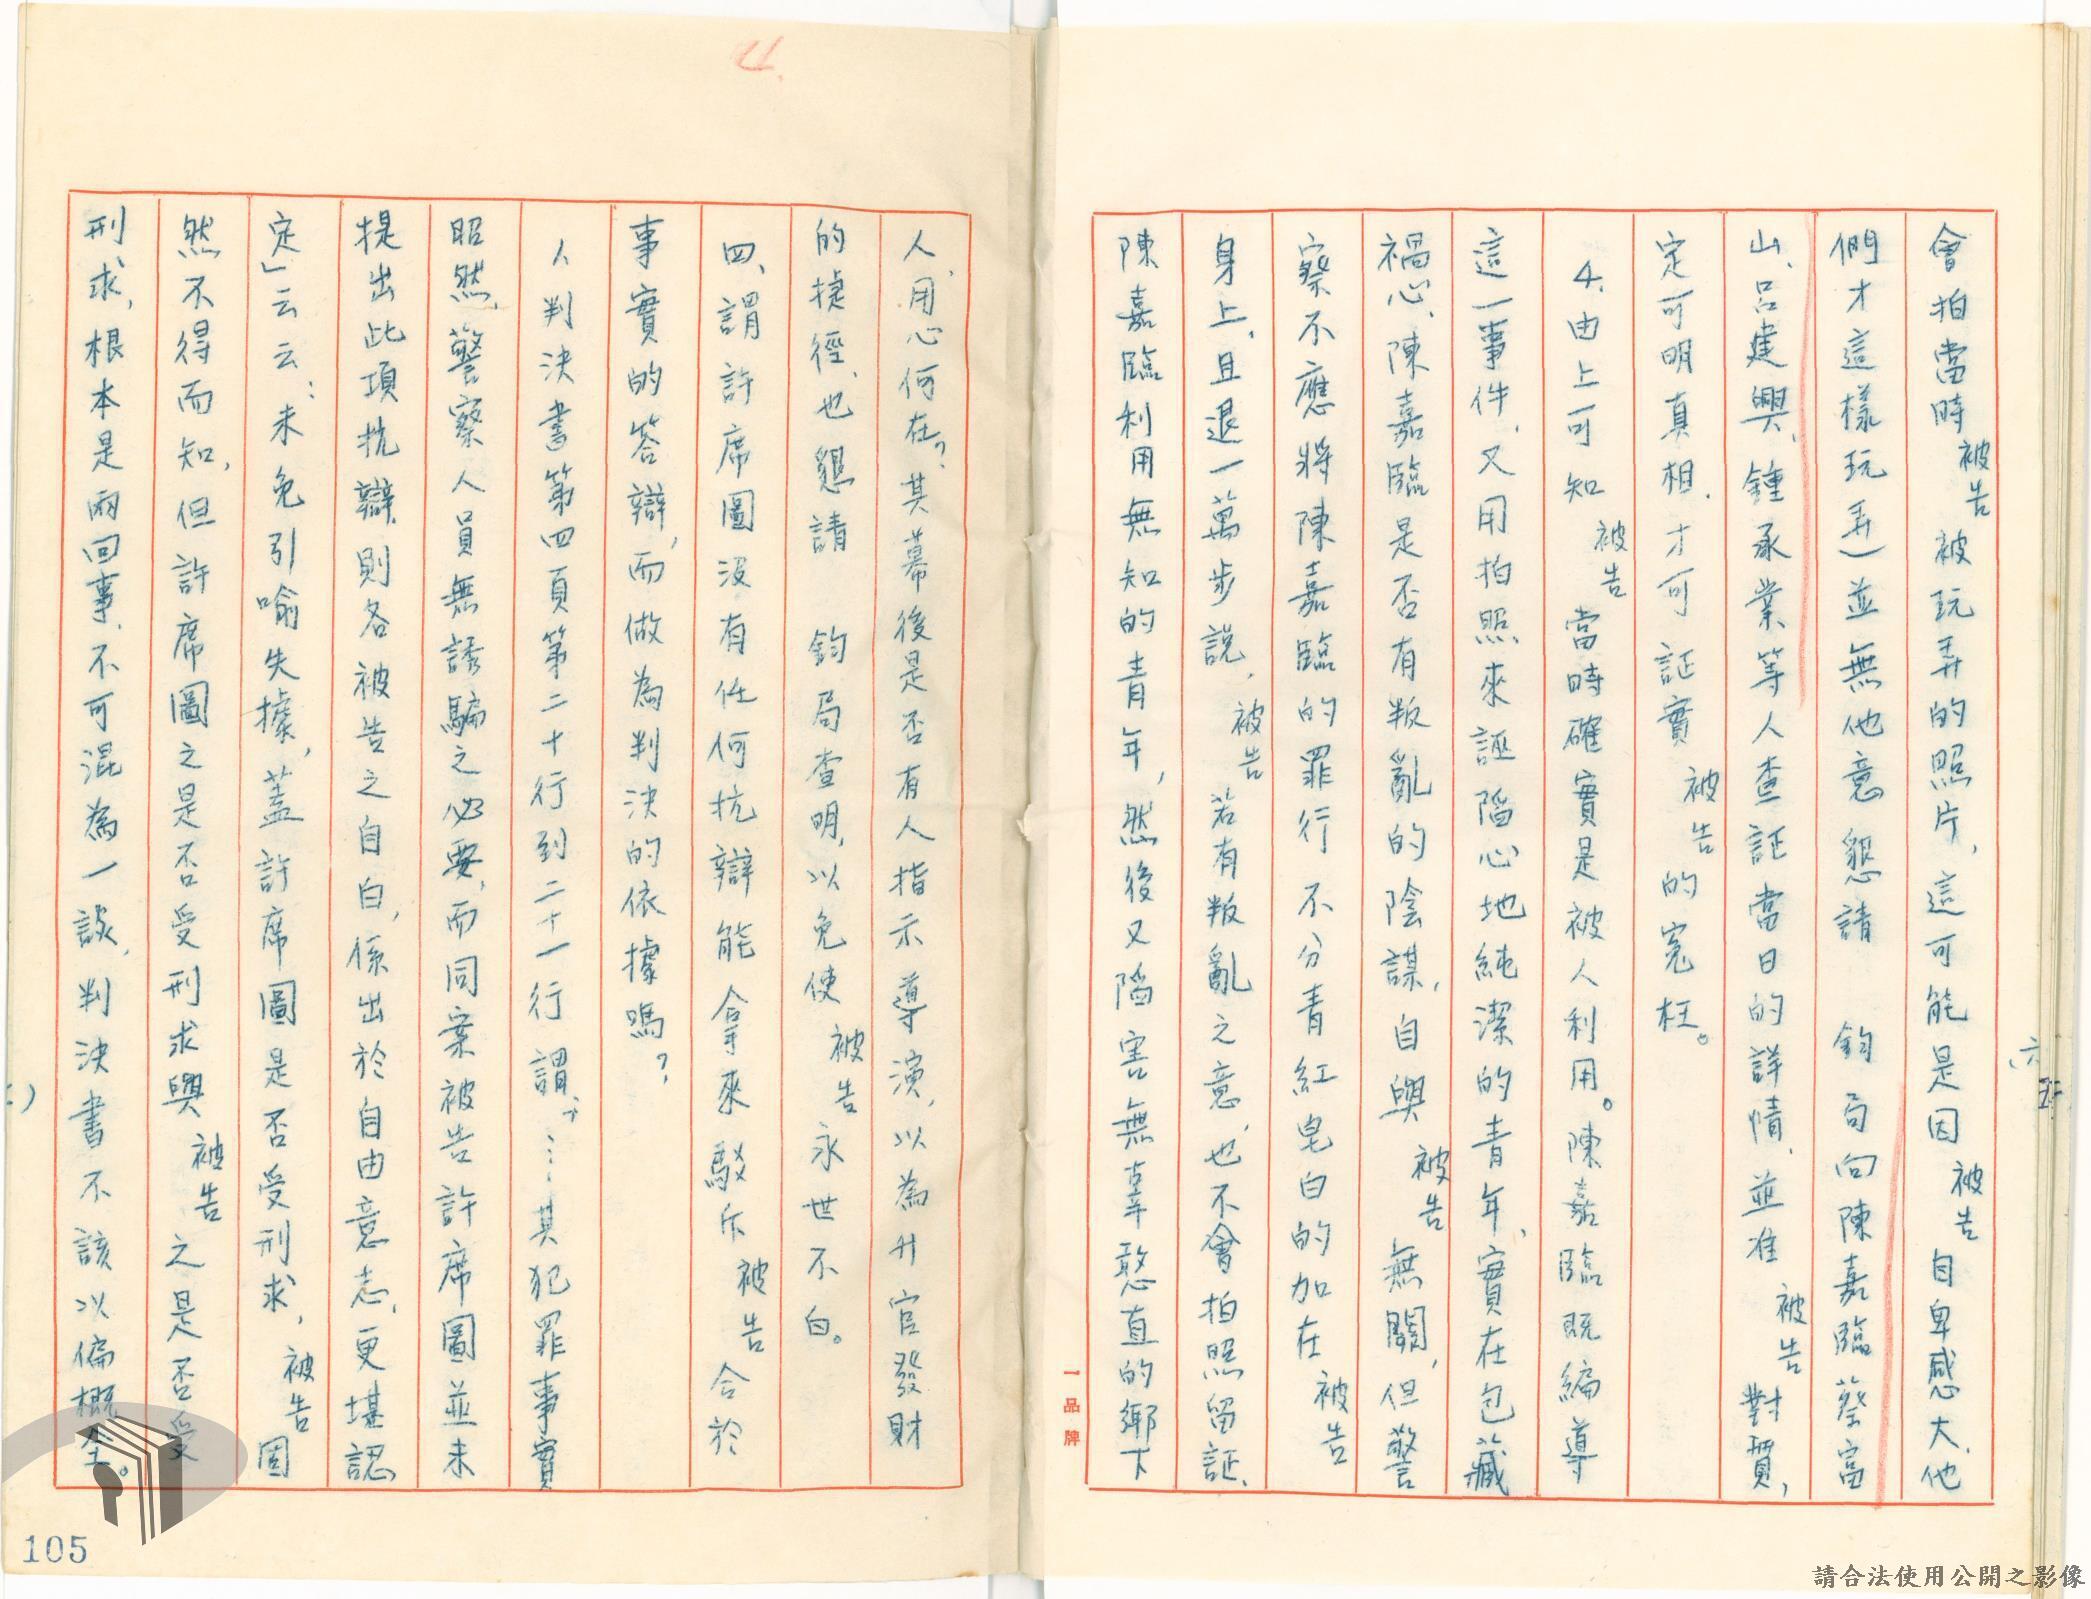 會拍當時被告被玩弄的照片，這可能是因被告自卑感大、他
們才這樣玩弄）並無他意　懇請　鈞局向陳嘉臨蔡富
山、呂建興、鍾承業等人查証當日的詳情、並准被告對質，
定可明真相、才可証實被告的冤枉。
4、由上可知被告當時確實是被人利用。陳嘉臨既編導
這一事件、又用拍照來誣陷心地純潔的青年、實在包藏
禍心、陳嘉臨是否有叛亂的陰謀，自與被告無關，但警
察不應將陳嘉臨的罪行不分青紅皂白的加在被告
身上、且退一萬步說，被告若有叛亂之意、也不會拍照留証、
陳嘉臨利用無知的青年，然後又陷害無辜憨直的鄉下
人、用心何在？其幕後是否有人指示導演，以為升官發財
的捷徑、也懇請　鈞局查明，以免使被告永世不白。
四、謂許席圖沒有任何抗辯能拿來駁斥被告合於
事實的答辯，而做為判決的依據嗎？
人判決書第四頁第二十行到二十一行謂「……其犯罪事實
昭然，警察人員無誘騙之必要，而同案被告許席圖並未
提出此項抗辯、則各被告之自白，係出於自由意志、更堪認
定」云云：未免引喻失據，蓋許席圖是否受刑求，被告固
然不得而知，但許席圖之是否受刑求與被告之是否受
刑求，根本是兩回事、不可混為一談、判決書不該以偏概全。
六
一品牌
105
請合法使用公開之影像